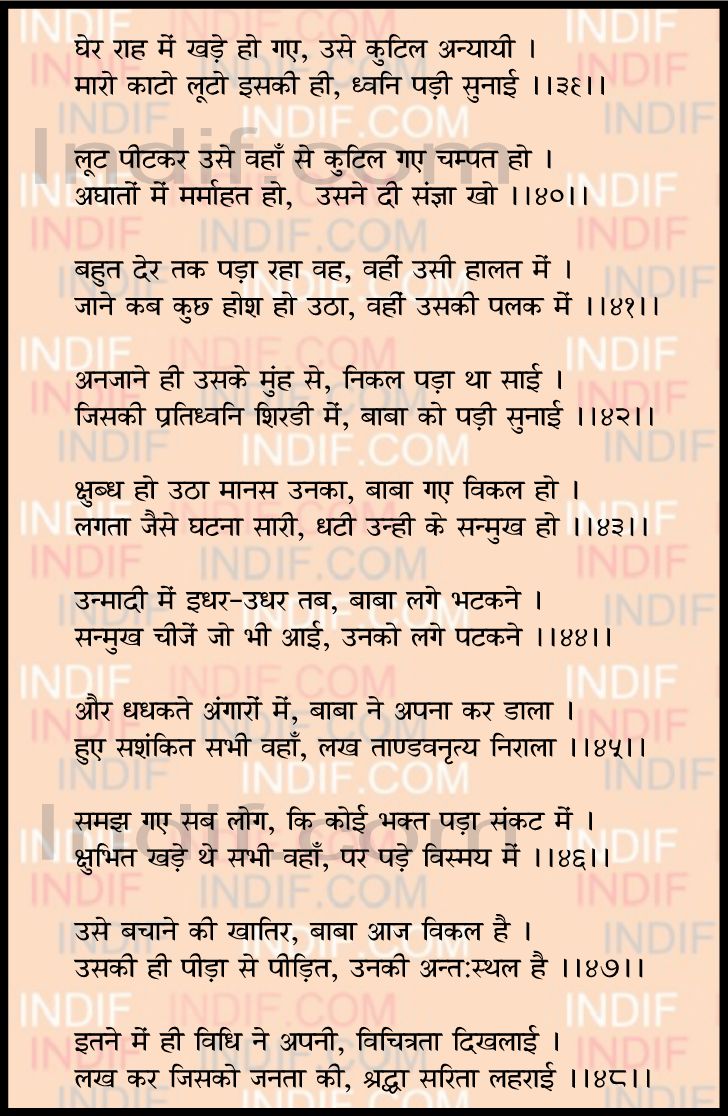 घेर राह में खड़े हो गए, उसे कुटिल अन्यायी ।
मारो काटो लूटो इसकी ही, ध्वनि पड़ी सुनाई ।।३९।।
लूट पीटकर उसे वहाँ से कुटिल गए चम्पत हो ।
अघातों में मर्माहत हो, उसने दी संज्ञा खो ।।४०।।
बहुत देर तक पड़ा रहा वह, वहीं उसी हालत में ।
जाने कब कुछ होश हो उठा, वहीं उसकी पलक में ।।४१।।
अनजाने ही उसके मुंह से, निकल पड़ा था साई ।
जिसकी प्रतिध्वनि शिरडी में, बाबा को पड़ी सुनाई ।।४२।।
क्षुब्ध हो उठा मानस उनका, बाबा गए विकल हो ।
लगता जैसे घटना सारी, धटी उन्ही के सन्मुख हो ।।४३।।
उन्मादी में इधर-उधर तब, बाबा लगे भटकने ।
सन्मुख चीजें जो भी आई, उनको लगे पटकने ।।४४।।
और धधकते अंगारों में, बाबा ने अपना कर डाला ।
हुए सशंकित सभी वहाँ, लख ताण्डवनृत्य निराला ।।४५।।
समझ गए सब लोग, कि कोई भक्त पड़ा संकट में ।
क्षुभित खड़े थे सभी वहाँ, पर पड़े विस्मय में ।।४६।।
उसे बचाने की खातिर, बाबा आज विकल है ।
उसकी ही पीड़ा से पीड़ित, उनकी अन्त:स्थल है ।।४७।।
इतने में ही विधि ने अपनी, विचित्रता दिखलाई ।
लख कर जिसको जनता की, श्रद्धा सरिता लहराई ।।४८।।